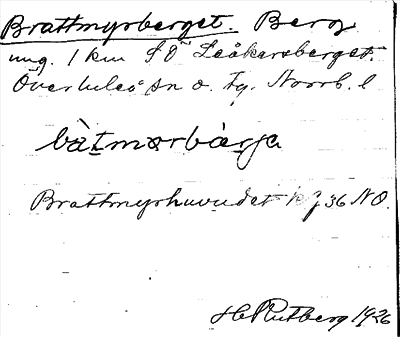 Brattmyrberget. Berg
ung. 1 km SO Leåkersberget.
Överluleå sn o. tg. Norrb. l
bàtmorbàrja
Brattmyrhuvudet k j 36 NO.
H Rutberg 1926